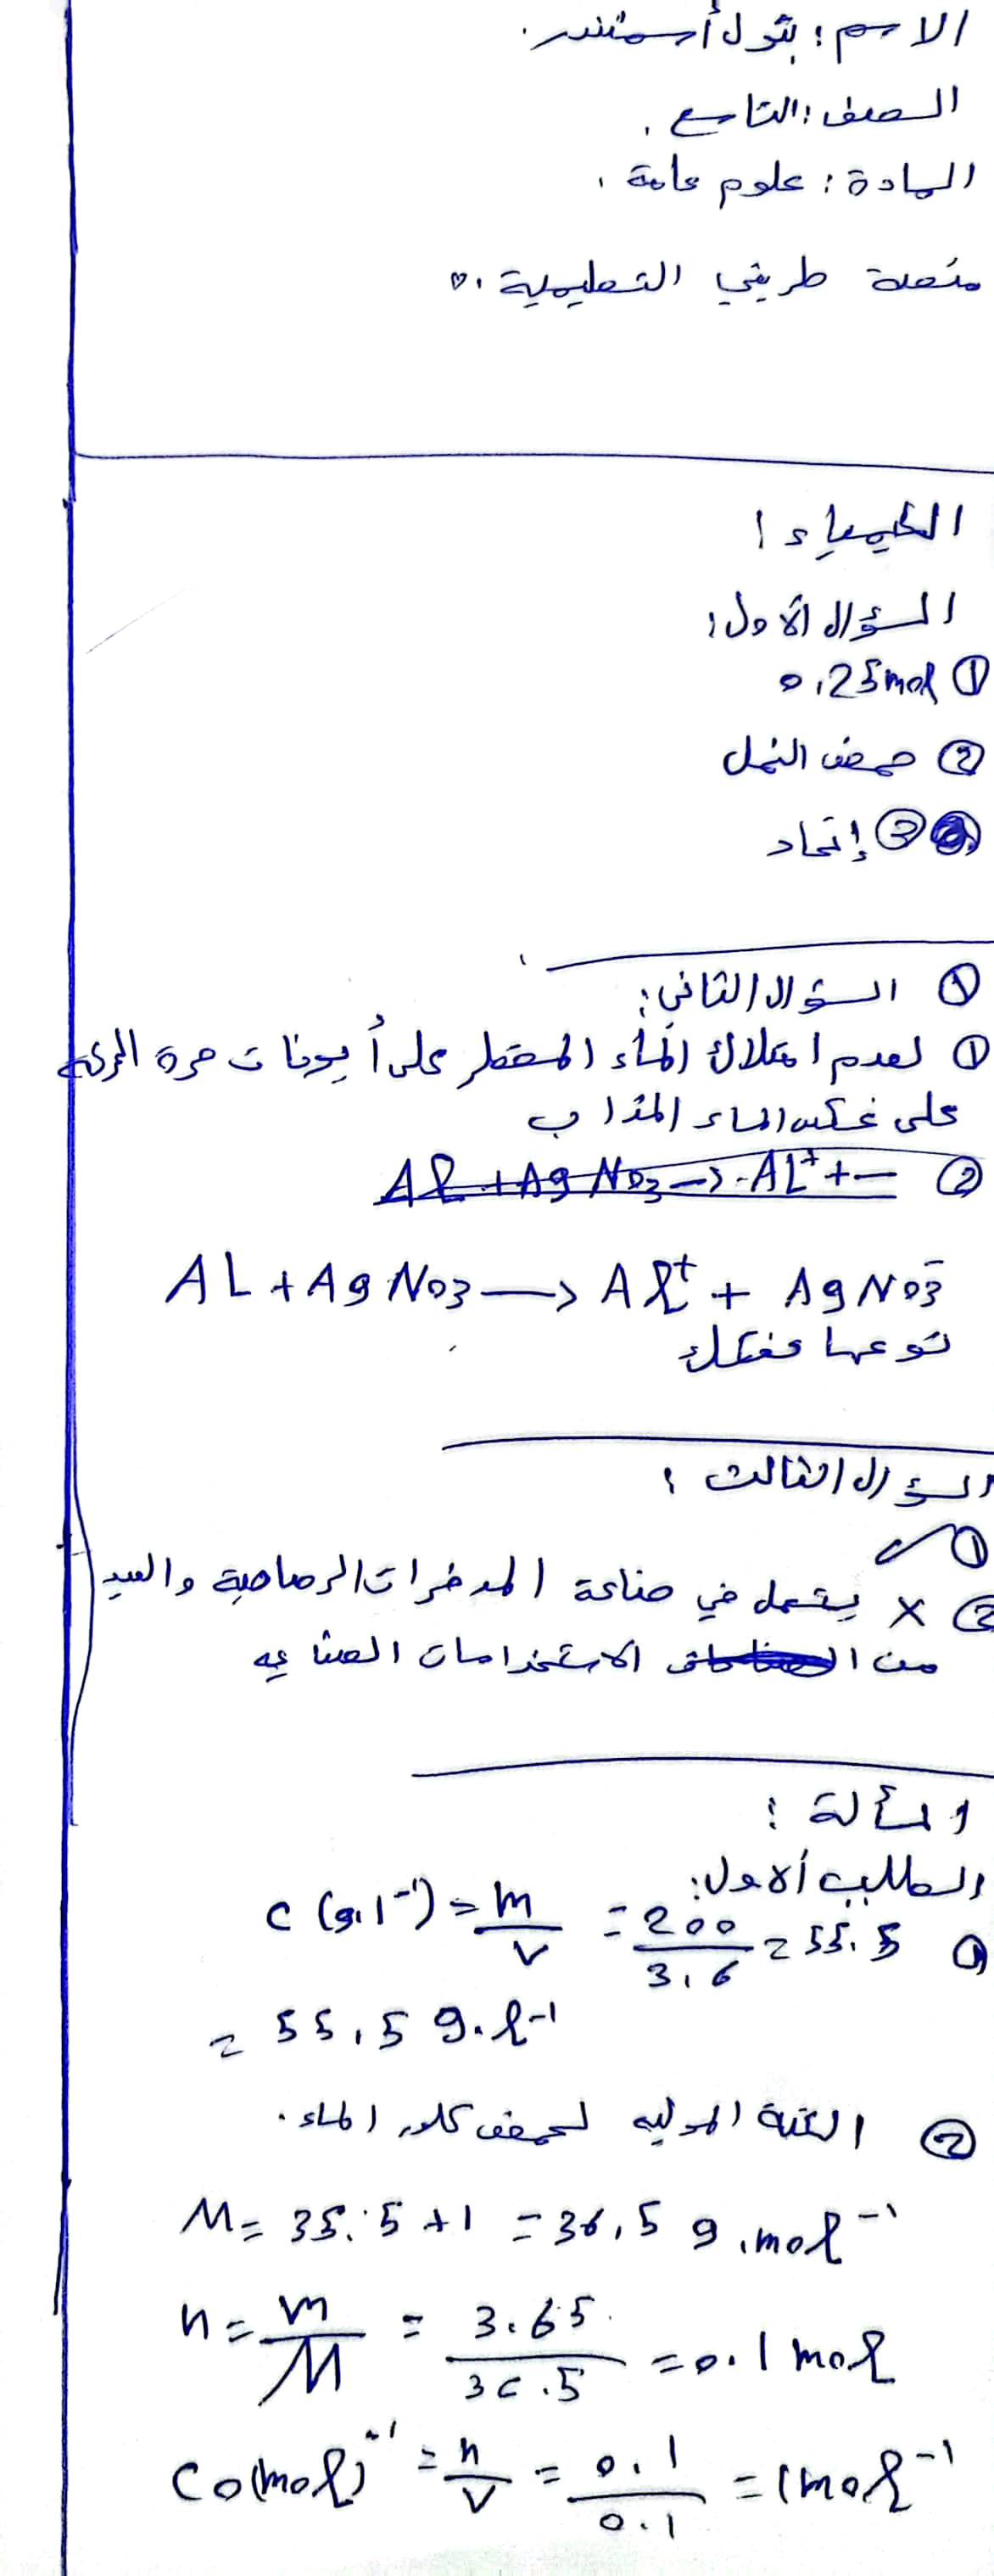 الاسم : بتول أسمتندر.
الصف : التاسع.
المادة : علوم عامة.
منصة طريقي التعليمية.
الكيمياء :
السؤال الأول :
① 0,25mol
② حمض النمل
③ إتحاد
① السؤال الثاني :
① لعدم امتلاك الماء المقطر على أيونات حرة الحركة
على عكس الماء المذاب
② Al + AgNO3 → AL⁺ + —
AL + AgNO3 → Al⁺ + AgNO3⁻
نوعها تفكك
السؤال الثالث :
① ✓
② × يستعمل في صناعة المدخرات الرصاصية والعديد
من الاستخدامات الصناعيه
المسألة :
الطلب الأول :
① C (g.l⁻¹) = m/v = 200/3,6 = 55.5
= 55,5 g.l⁻¹
② الكتلة الموليه لحمض كلور الماء.
M = 35.5 + 1 = 36,5 g.mol⁻¹
n = m/M = 3.65/36.5 = 0.1 mol
Co(mol)⁻¹ = n/v = 0.1/0.1 = 1mol⁻¹